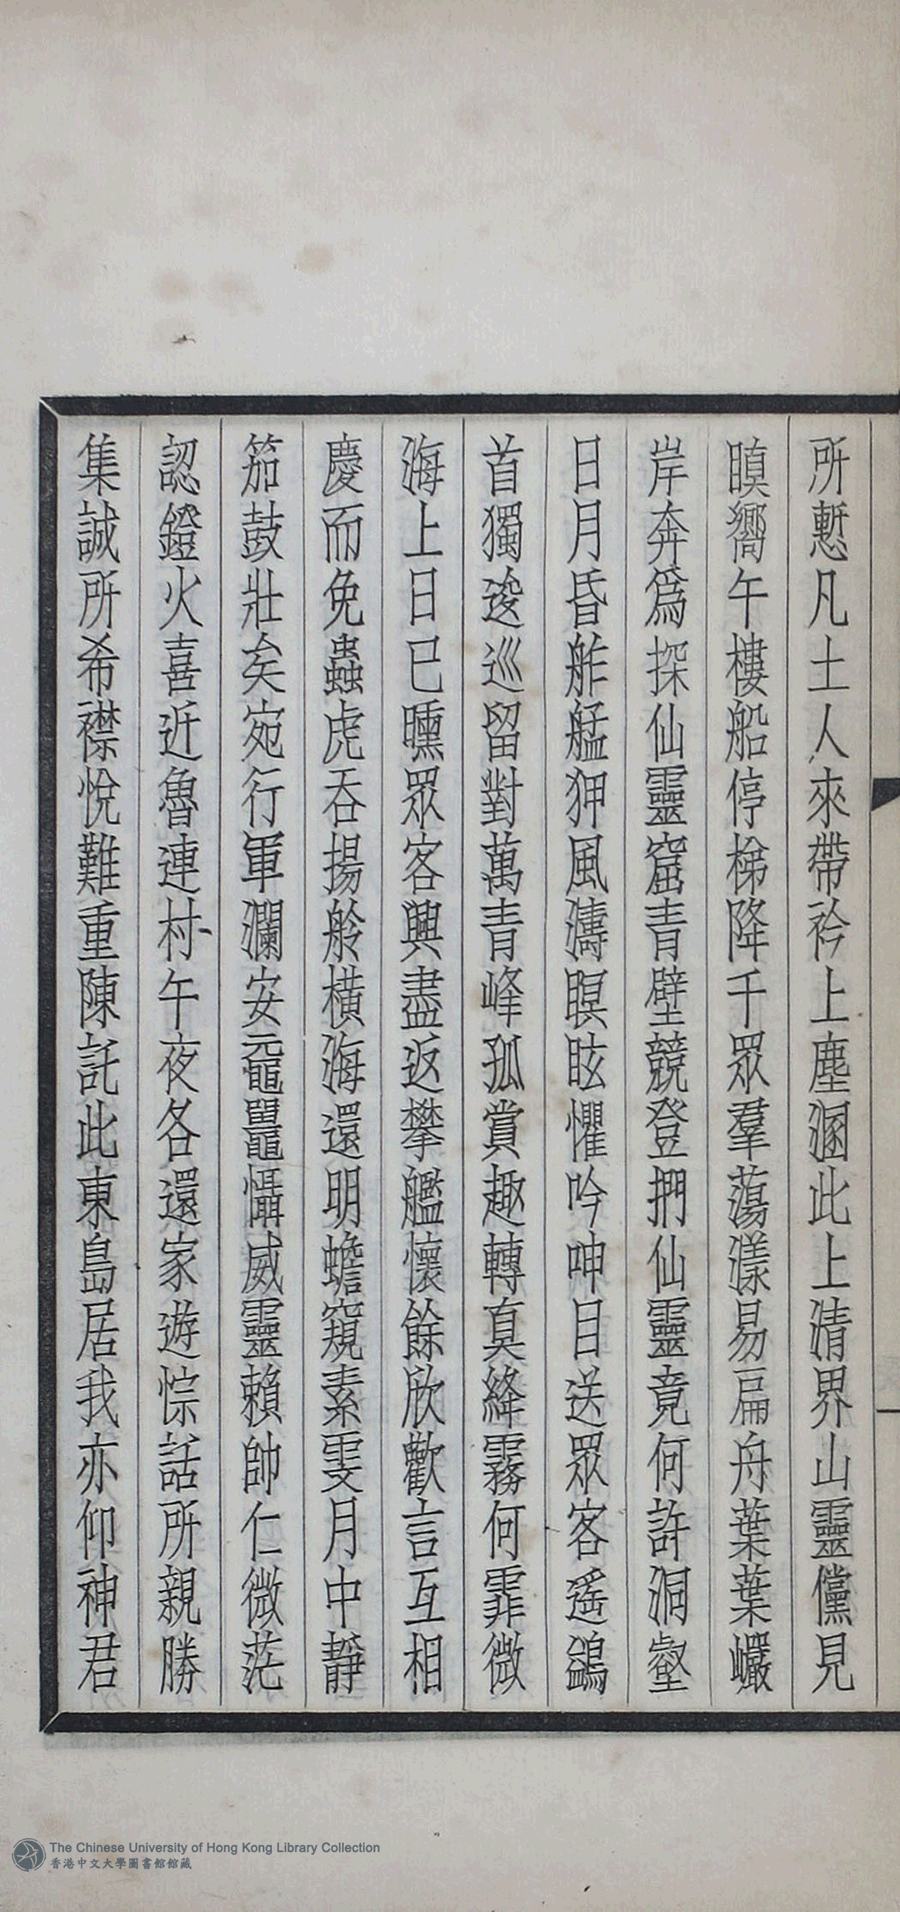 所慙凡土人來帶衿上塵溷此上清界山靈儻見
瞋嚮午樓船停梯降千眾羣蕩漾易扁舟葉葉巖
岸奔爲探仙靈窟青壁競登捫仙靈竟何許洞壑
日月昏舴艋狎風濤瞑眩懼吟呻目送眾客遥鷁
首獨逡巡留對萬青峰孤賞趣轉真絳霧何霏微
海上日已曛眾客興盡返攀艦懷餘欣歡言互相
慶而免蟲虎吞揚舲橫海還明蟾窺素雯月中靜
笳鼓壯矣宛行軍瀾安黿鼉懾威靈賴帥仁微茫
認鐙火喜近魯連村午夜各還家遊悰話所親勝
集誠所希襟悅難重陳託此東島居我亦仰神君
The Chinese University of Hong Kong Library Collection
香港中文大學圖書館館藏